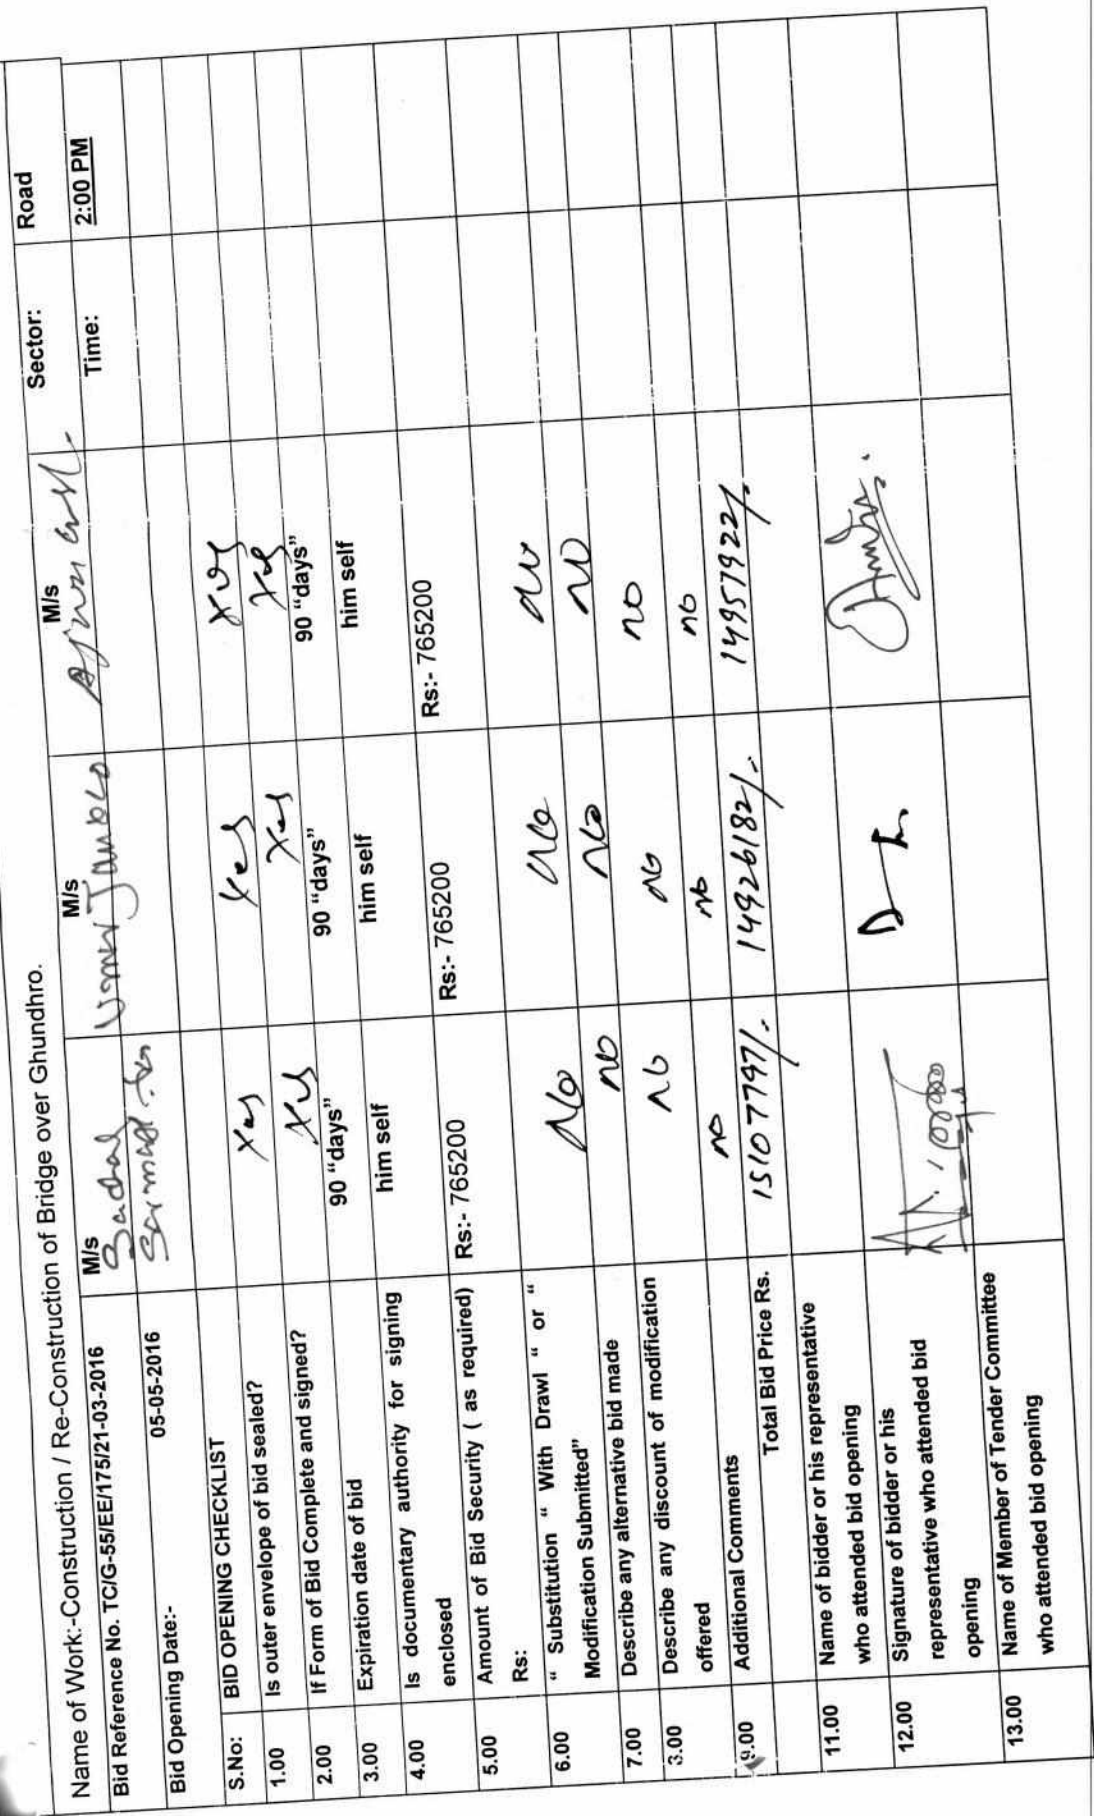 Name of Work:-Construction / Re-Construction of Bridge over Ghundhro. Sector: Road
Bid Reference No. TC/G-55/EE/175/21-03-2016 M/s Bachal M/s M/s Time: 2:00 PM
Bid Opening Date:- 05-05-2016
S.No: BID OPENING CHECKLIST
1.00 Is outer envelope of bid sealed? Yes Yes Yes
2.00 If Form of Bid Complete and signed? Yes Yes Yes
3.00 Expiration date of bid 90 "days" 90 "days" 90 "days"
4.00 Is documentary authority for signing him self him self him self
enclosed
5.00 Amount of Bid Security ( as required) Rs:- 765200 Rs:- 765200 Rs:- 765200
Rs:
6.00 " Substitution " With Drawl " or " No No No
Modification Submitted"
7.00 Describe any alternative bid made no No no
3.00 Describe any discount of modification no no no
offered
9.00 Additional Comments no no no
Total Bid Price Rs. 15107797/- 14926182/- 14957922/-
11.00 Name of bidder or his representative
who attended bid opening
12.00 Signature of bidder or his
representative who attended bid
opening
13.00 Name of Member of Tender Committee
who attended bid opening